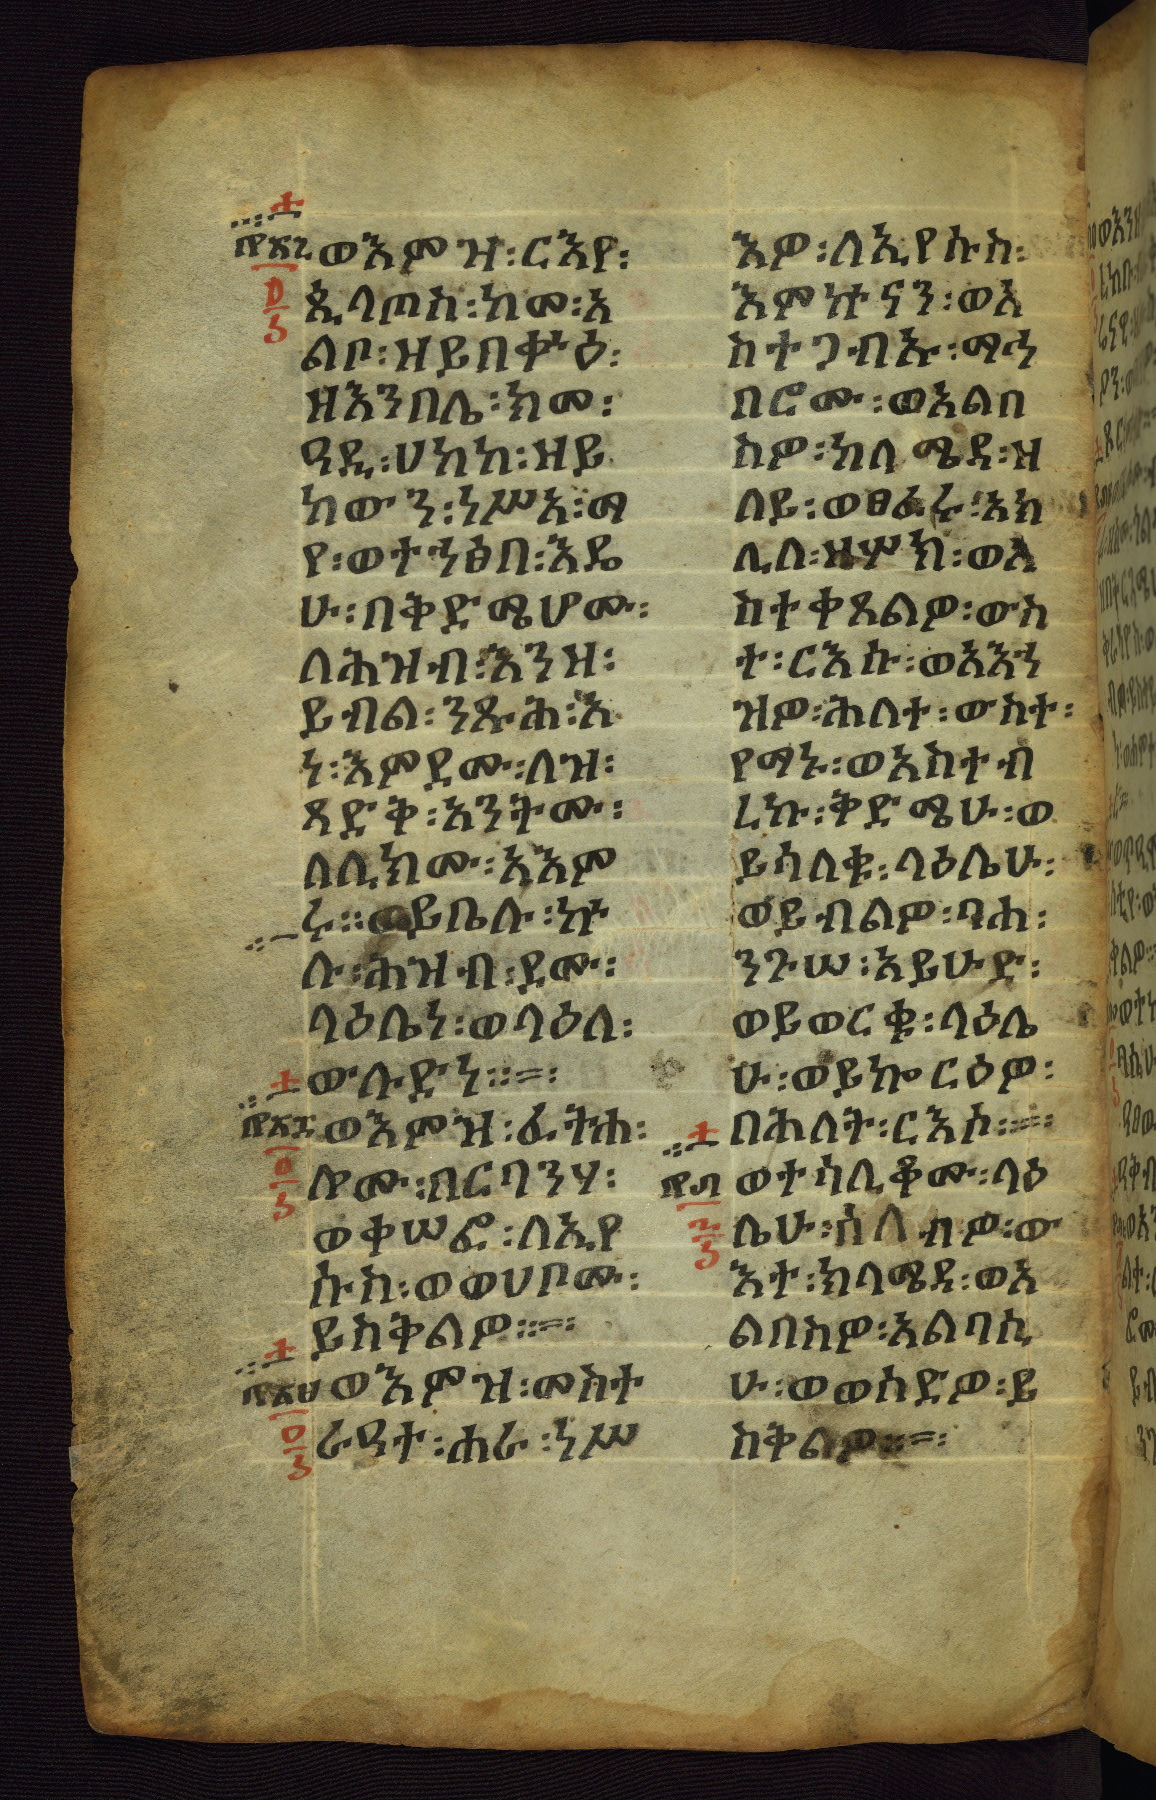 ወእምዝ፡ርእየ፡
ጲላጦስ፡ከመ፡አ
ልቦ፡ዘይበቍዕ፡
ዘእንበሌ፡ክመ፡
ዓዲ፡ሀከከ፡ዘይ
ከውን፡ነሥአ፡ማ
የ፡ወተኀፅበ፡እዴ
ሁ፡በቅድሜሆሙ፡
ለሕዝብ፡እንዘ፡
ይብል፡ንጹሕ፡አ
ነ፡እምደሙ፡ለዝ፡
ጻድቅ፡አንትሙ፡
ለሊክሙ፡አእም
ሩ።ወይቤሉ፡ኵ
ሉ፡ሕዝብ፡ደሙ፡
ላዕሌነ፡ወላዕለ፡
ውሉድነ፡፡=፡
ወእምዝ፡ፈትሐ፡
ሎሙ፡በርባንሃ፡
ወቀሠፎ፡ለኢየ
ሱስ፡ወወሀቦሙ፡
ይስቅልዎ፡፡=፡
ወእምዝ፡መስተ
ራዓተ፡ሐራ፡ነሥ
እዎ፡ለኢየሱስ፡
እምኵናን፡ወአ
ስተጋብኡ፡ማኅ
በሮሙ፡ወአልበ
ስዎ፡ክለሜዳ፡ዘ
ለይ፡ወፀፈሩ፡አክ
ሊለ፡ዘሦክ፡ወአ
ስተቀጸልዎ፡ውስ
ተ፡ርእሱ፡ወአእኀ
ዝዎ፡ሕለተ፡ውስተ፡
የማኑ፡ወአስተብ
ረኩ፡ቅድሜሁ፡ወ
ይሳለቁ፡ላዕሌሁ፡
ወይብልዎ፡ባሐ፡
ንጉሠ፡አይሁድ፡
ወይወርቁ፡ላዕሌ
ሁ፡ወይኰርዕዎ፡
በሕለት፡ርእሶ፡=፡
ወተሳሊቆሙ፡ላዕ
ሌሁ፡ሰለብዎ፡ው
እተ፡ክላሜዳ፡ወአ
ልበስዎ፡አልባሲ
ሁ፡ወወስድዎ፡ይ
ስቅልዎ፡፡=፡